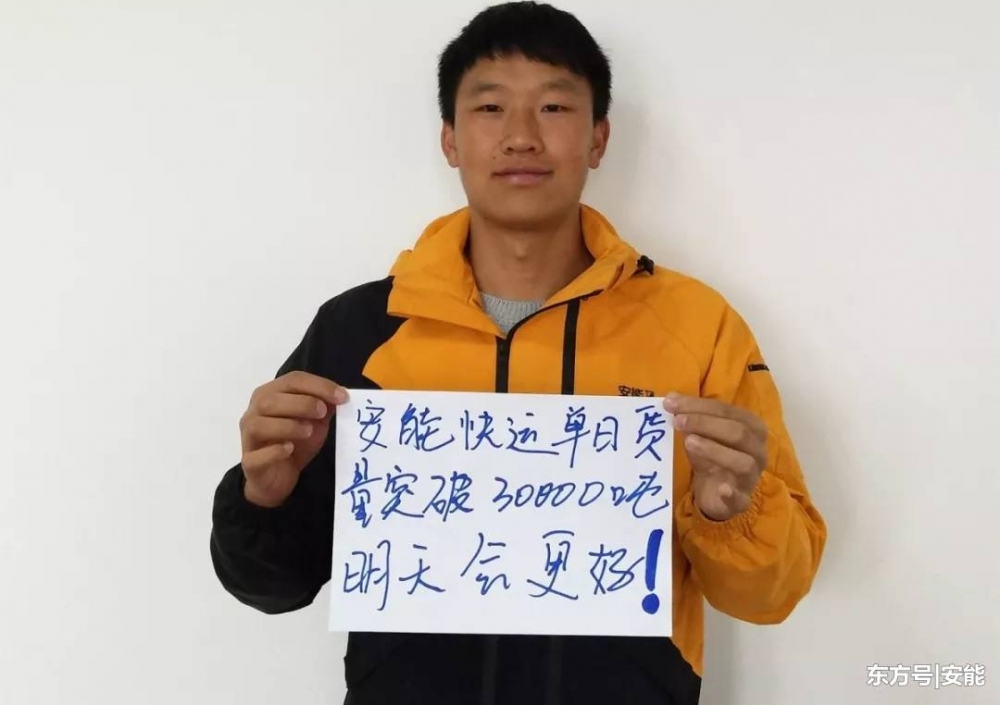 安能快运单日货
量突破30000吨
明天会更好！
安能
东方号|安能